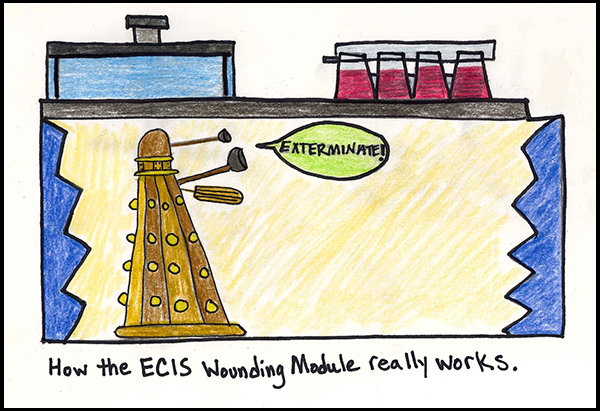 EXTERMINATE!
How the ECIS Wounding Module really works.